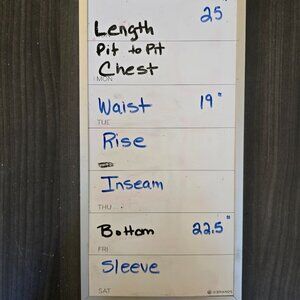 25"
Length
Pit to Pit
Chest
MON
Waist 19"
TUE
Rise
Inseam
THU
Bottom 22.5"
FRI
Sleeve
SAT